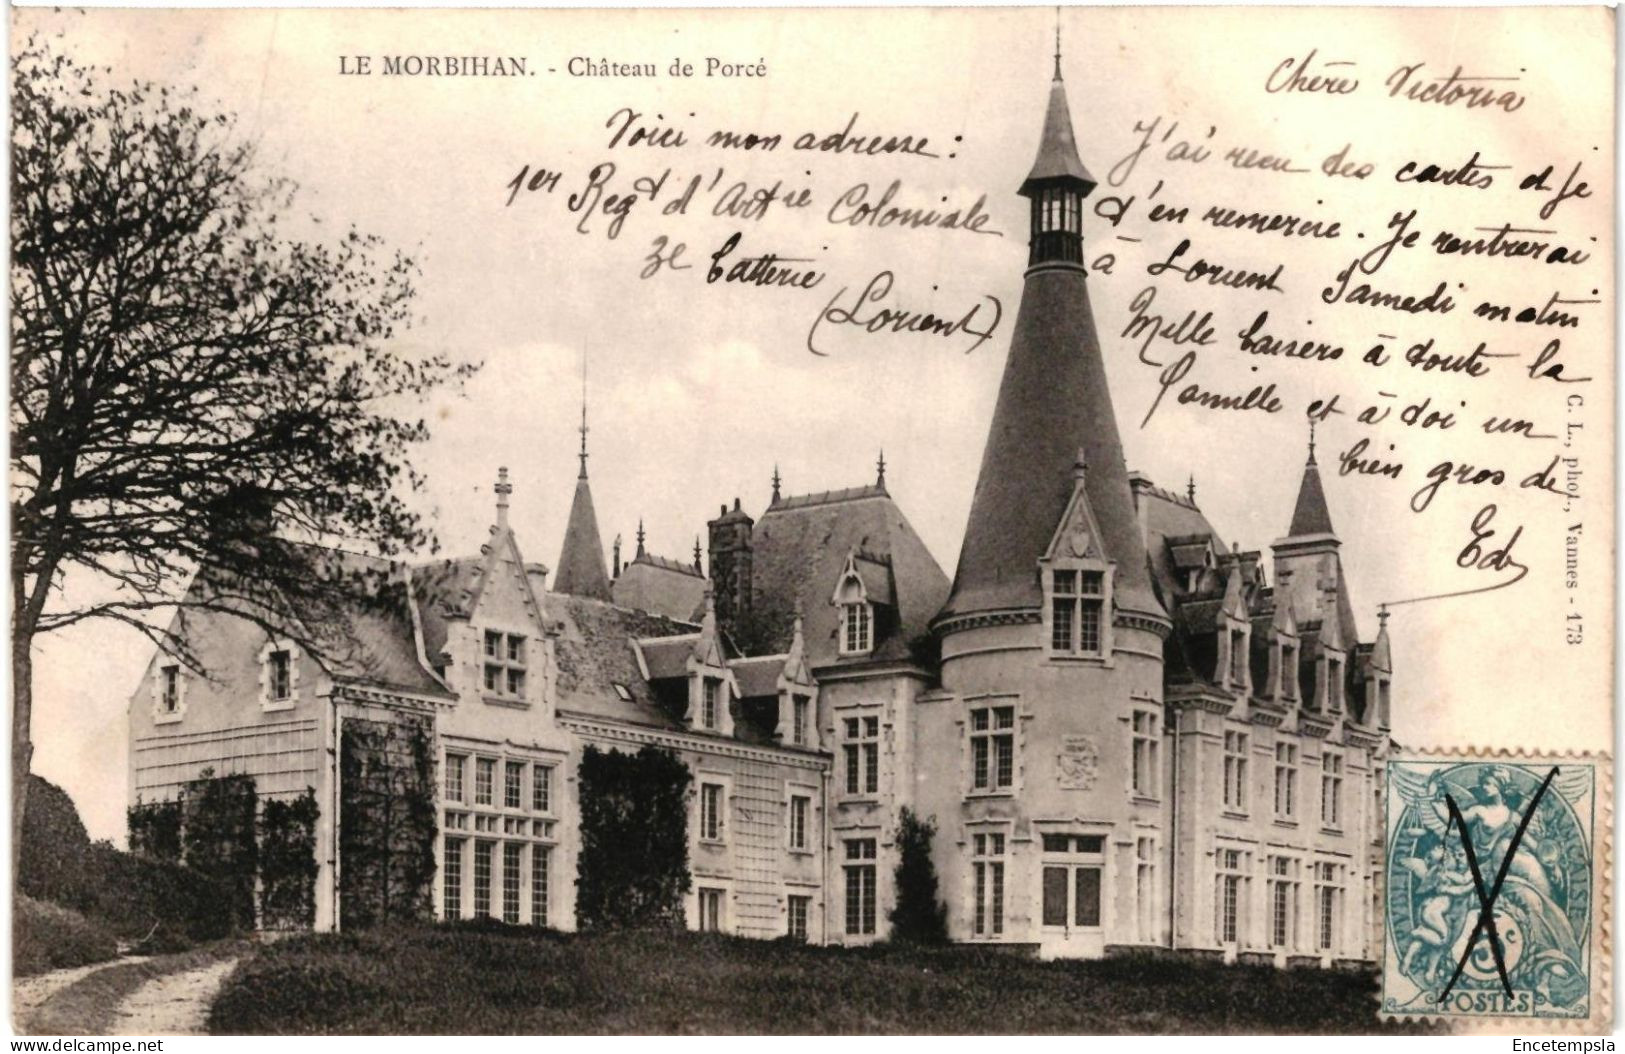 LE MORBIHAN. - Château de Porcé
Voici mon adresse :
1er Regt d'Artie Coloniale
3e batterie
(Lorient)
Chère Victoria
J'ai recu des cartes et Je
t'en remercie. Je rentrerai
à Lorient Samedi matin
Mille baisers à toute la
famille et à toi un
bien gros de
Ed
C. L., phot., Vannes - 173
RÉPUBLIQUE FRANÇAISE
5c
POSTES
delcampe.net
Encetempsla